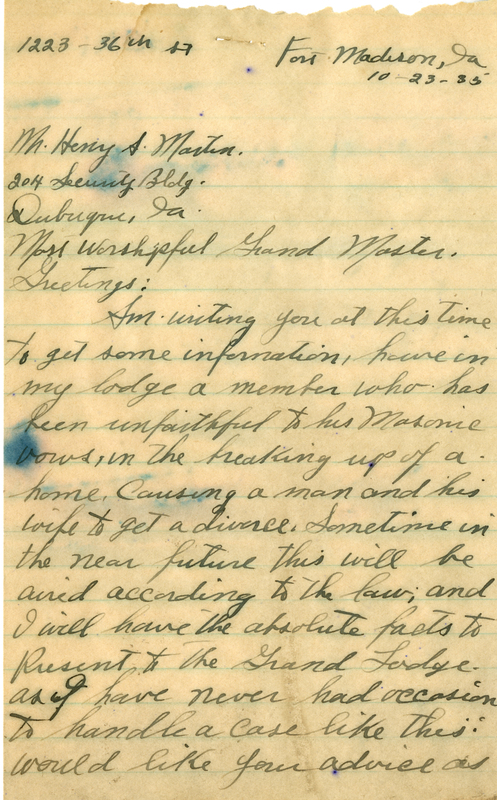 1223 - 36th St
Fort Madison, Ia
10-23-35
Mr. Henry S. Martin.
204 Security Bldg.
Dubuque, Ia.
Most Worshipful Grand Master.
Greetings:
Am writing you at this time
to get some information, have in
my lodge a member who has
been unfaithful to his Masonic
vows, in the breaking up of a
home. Causing a man and his
wife to get a divorce. Sometime in
the near future this will be
aired according to the law, and
I will have the absolute facts to
Present to the Grand Lodge.
as I have never had occasion
to handle a case like this.
would like your advice as